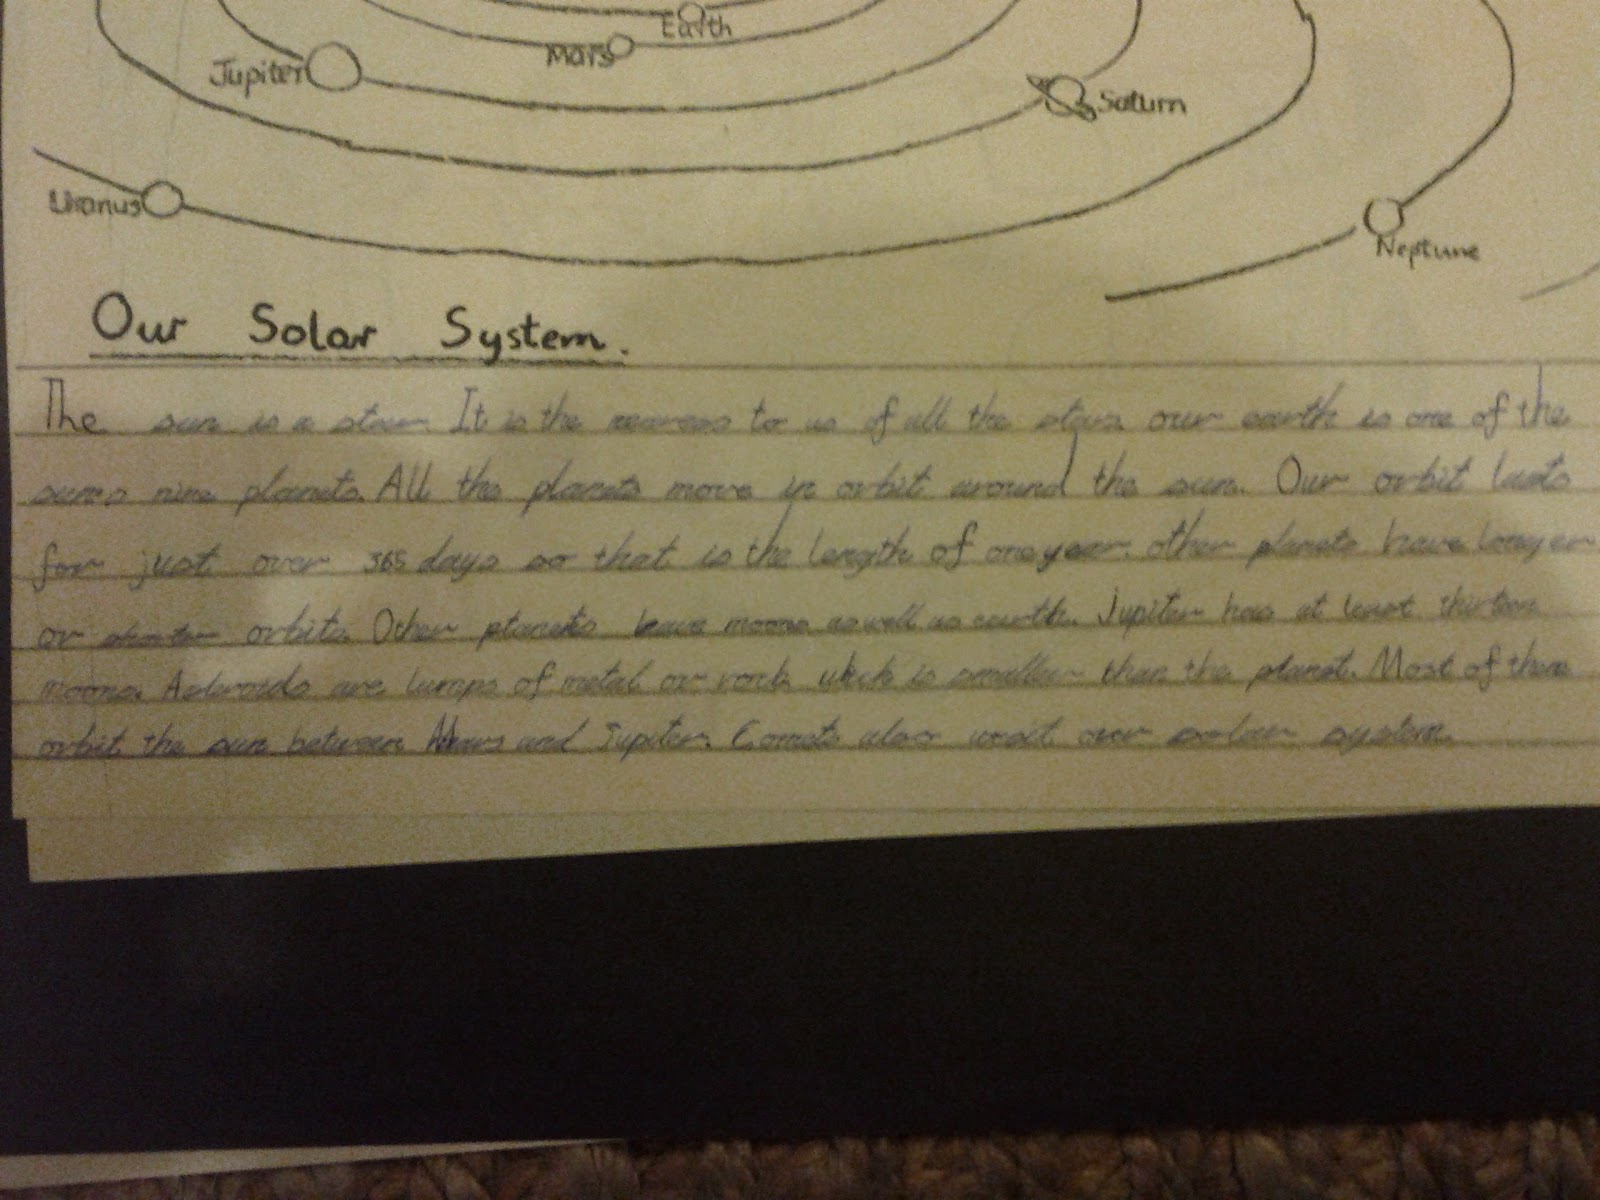 Earth
Mars
Jupiter
Saturn
Uranus
Neptune
Our Solar System.
The sun is a star. It is the nearess to us of all the stars our earth is one of the
suns nine planets. All the planets move in orbit around the sun. Our orbit lasts
for just over 365 days so that is the length of one year. other planets have longer
or shorter orbits. Other planets have moons as well as earth. Jupiter has at least thirteen
moons. Asteroids are lumps of metal or rock which is smaller than the planet. Most of them
orbit the sun between Mars and Jupiter. Comets also our solar system.